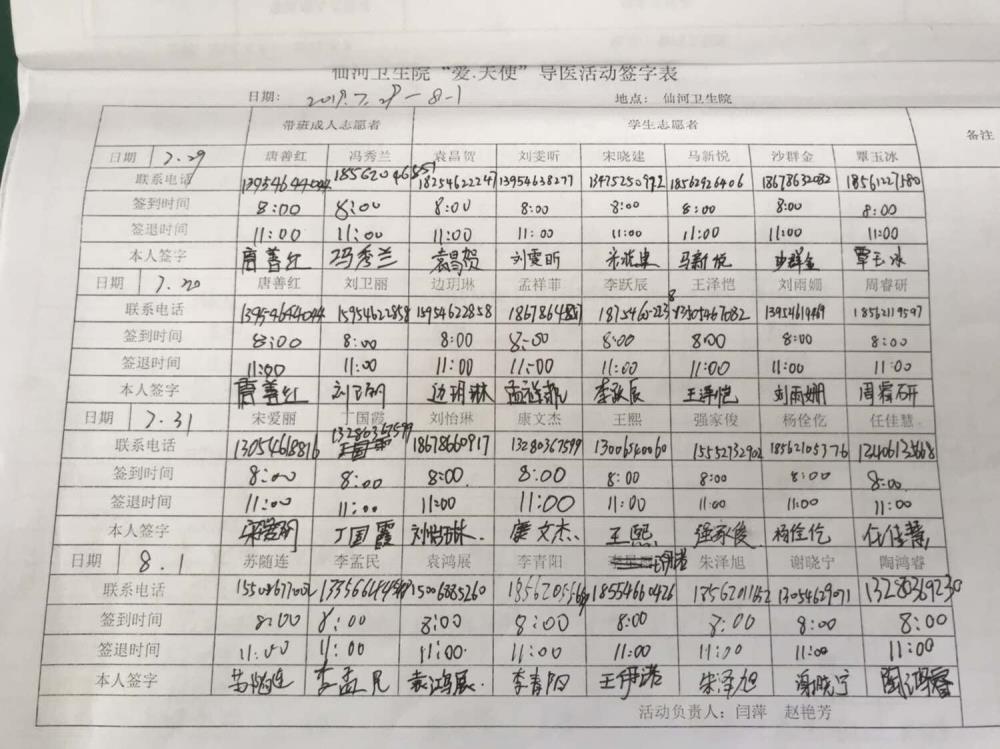 仙河卫生院“爱.天使”导医活动签字表
日期: 2019.7.29-8-1 地点: 仙河卫生院
带班成人志愿者 学生志愿者 备注
日期 7.29 唐善红 冯秀兰 袁昌贺 刘雯昕 宋晓建 马新悦 沙群金 覃玉冰
联系电话 18254622247 13954638277 18562926406 18678632082
签到时间 8:00 8:00 8:00 8:00 8:00 8:00 8:00 8:00
签退时间 11:00 11:00 11:00 11:00 11:00 11:00 11:00 11:00
本人签字 唐善红 冯秀兰 袁昌贺 刘雯昕 宋晓建 马新悦 沙群金 覃玉冰
日期 7.30 唐善红 刘卫丽 边玥琳 孟祥菲 李跃辰 王泽恺 刘雨姗 周睿研
联系电话 13954644044 15954622858 15954622858 18562119597
签到时间 8:00 8:00 8:00 8:00 8:00 8:00 8:00 8:00
签退时间 11:00 11:00 11:00 11:00 11:00 11:00 11:00 11:00
本人签字 唐善红 刘卫丽 边玥琳 孟祥菲 李跃辰 王泽恺 刘雨姗 周睿研
日期 7.31 宋爱丽 丁国霞 刘怡琳 康文杰 王熙 强家俊 杨佺仡 任佳慧
联系电话 13054618816 13280367599 18678660917 13280367599 13006540060 15552732902 18562105776
签到时间 8:00 8:00 8:00 8:00 8:00 8:00 8:00 8:00
签退时间 11:00 11:00 11:00 11:00 11:00 11:00 11:00 11:00
本人签字 宋爱丽 丁国霞 刘怡琳. 康文杰. 王熙. 强家俊 杨佺仡 任佳慧
日期 8.1 苏随连 李孟民 袁鸿展 李青阳 朱泽旭 谢晓宁 陶鸿睿
联系电话 15006885260 18554660426 13054629071 13280369230
签到时间 8:00 8:00 8:00 8:00 8:00 8:00 8:00 8:00
签退时间 11:00 11:00 11:00. 11:00 11:00 11:00 11:00 11:00
本人签字 苏随连 李孟民 袁鸿展. 李青阳 王伊诺 朱泽旭 谢晓宁 陶鸿睿
活动负责人: 闫萍 赵艳芳